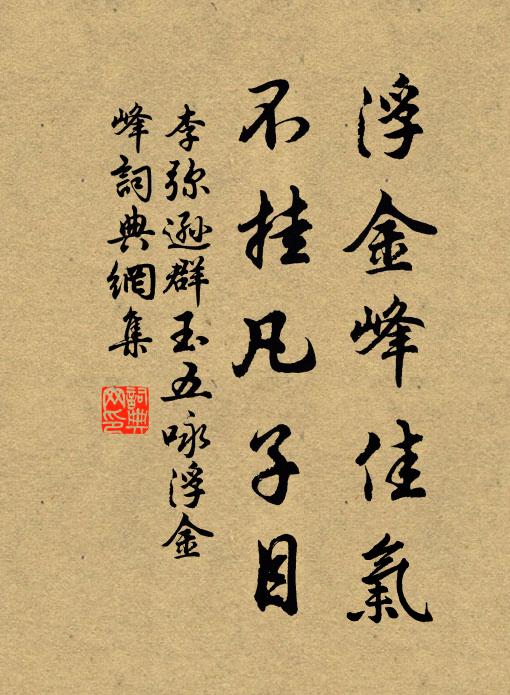 浮金峰佳氣
不挂凡子目
李弥遜群玉五咏浮金
峰詞典網集
詞典网印